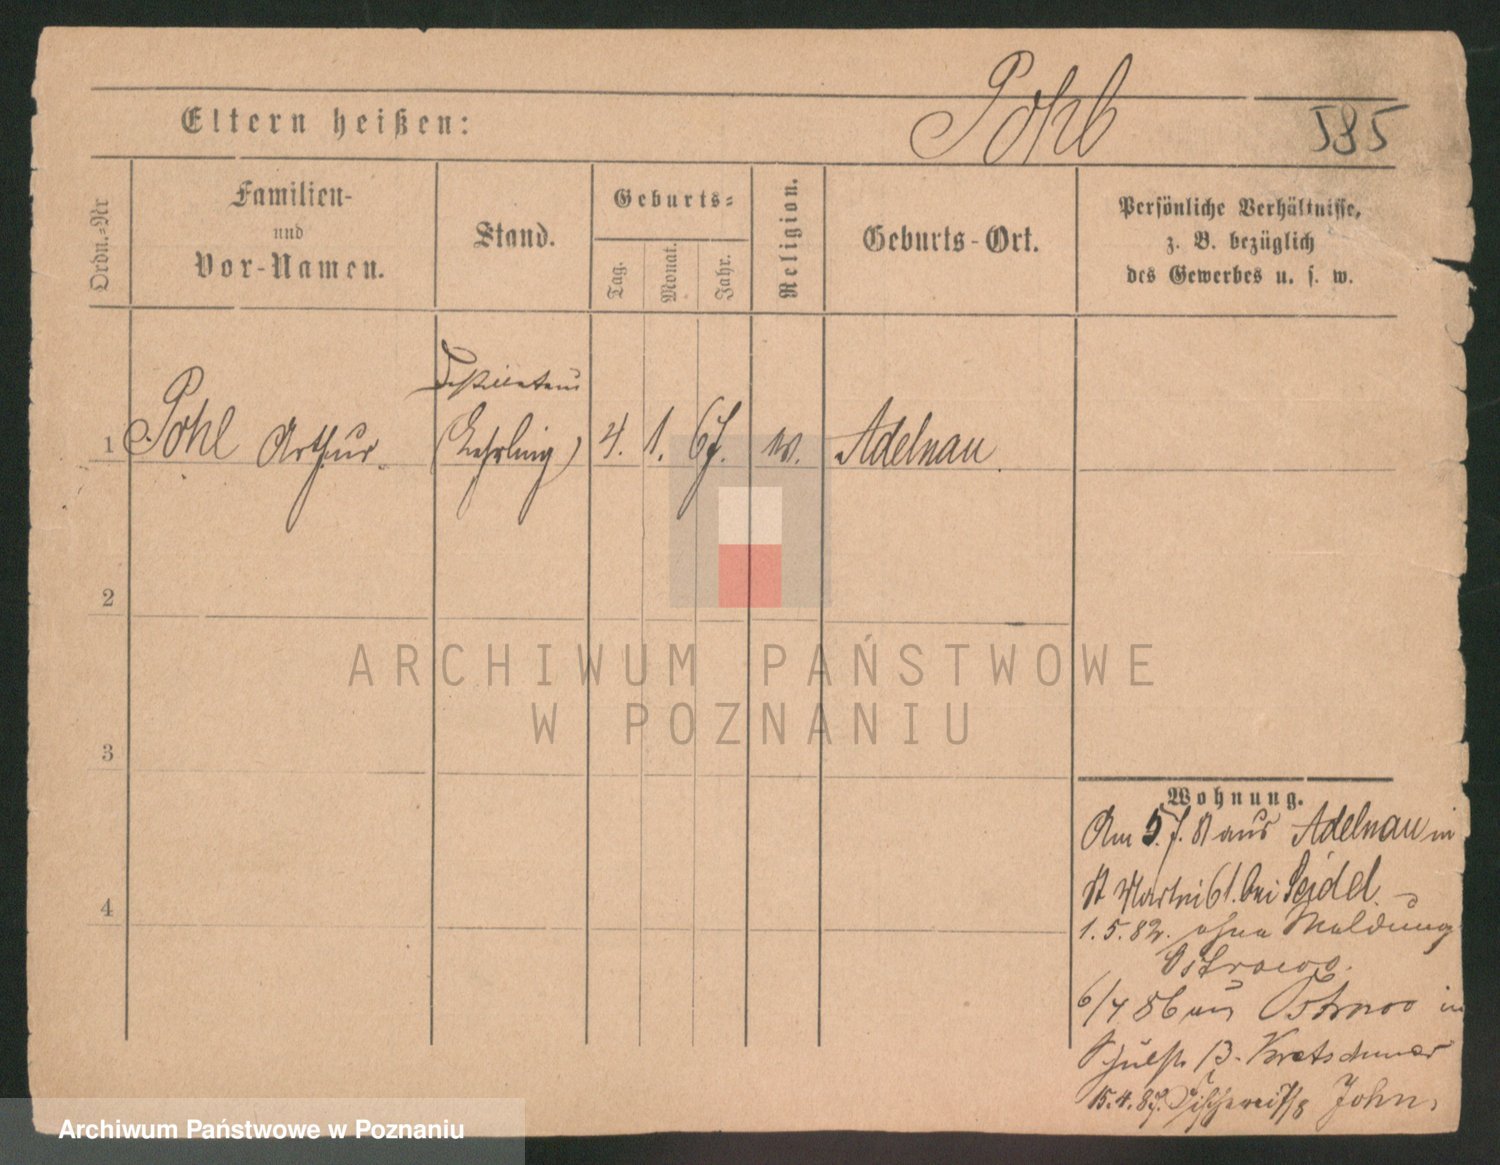 Pohl
535
Eltern heißen:
Ordn.-Nr
Familien-
und
Vor-Namen.
Stand.
Geburts-
Tag.
Monat.
Jahr.
Religion.
Geburts-Ort.
Persönliche Verhältnisse,
z. B. bezüglich
des Gewerbes u. s. w.
Destillateur
1 Pohl Arthur. (Lehrling) 4. 1. 67. Adelnau.
2
ARCHIWUM PAŃSTWOWE
W POZNANIU
3
4
Wohnung.
Am 5. 7. 81 aus Adelnau in
St Martin 61. bei Seidel.
1.5.82. ohne Meldung
Ostrowo.
6/4 86 aus Ostrowo in
Schulstr 13. Kretschmer
15.4.87. John.
Archiwum Państwowe w Poznaniu